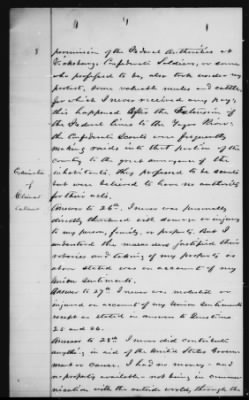 8
permission of the Federal Authorities at
Vicksburg. Confederate Soldiers, or some
who professed to be, also took under my
protest, some valuable mules and cattle,
for which I never received any pay;
this happened after the extension of
the Federal lines to the Yazoo River.
the Confederate Scouts were frequently
making raids in that portion of the
country to the great annoyance of the
inhabitants. they professed to be scouts
but were believed to have no authority
for their acts.
of
Claimant
Answer to 26th. I never was personally
directly threatened with damage or injury
to my person, family, or property. But I
understood the marauders justified their
robberies and taking of my property as
above stated was on account of my
Union Sentiments.
Answer to 27th I never was molested or
injured on account of my Union Sentiments
except as stated in answer to Questions
25 and 26.
Answer to 28th I never did contribute
anything in aid of the United States Govern
ment or cause. I had no money - and
no property available - not being in commu
nication with the outside world, through the